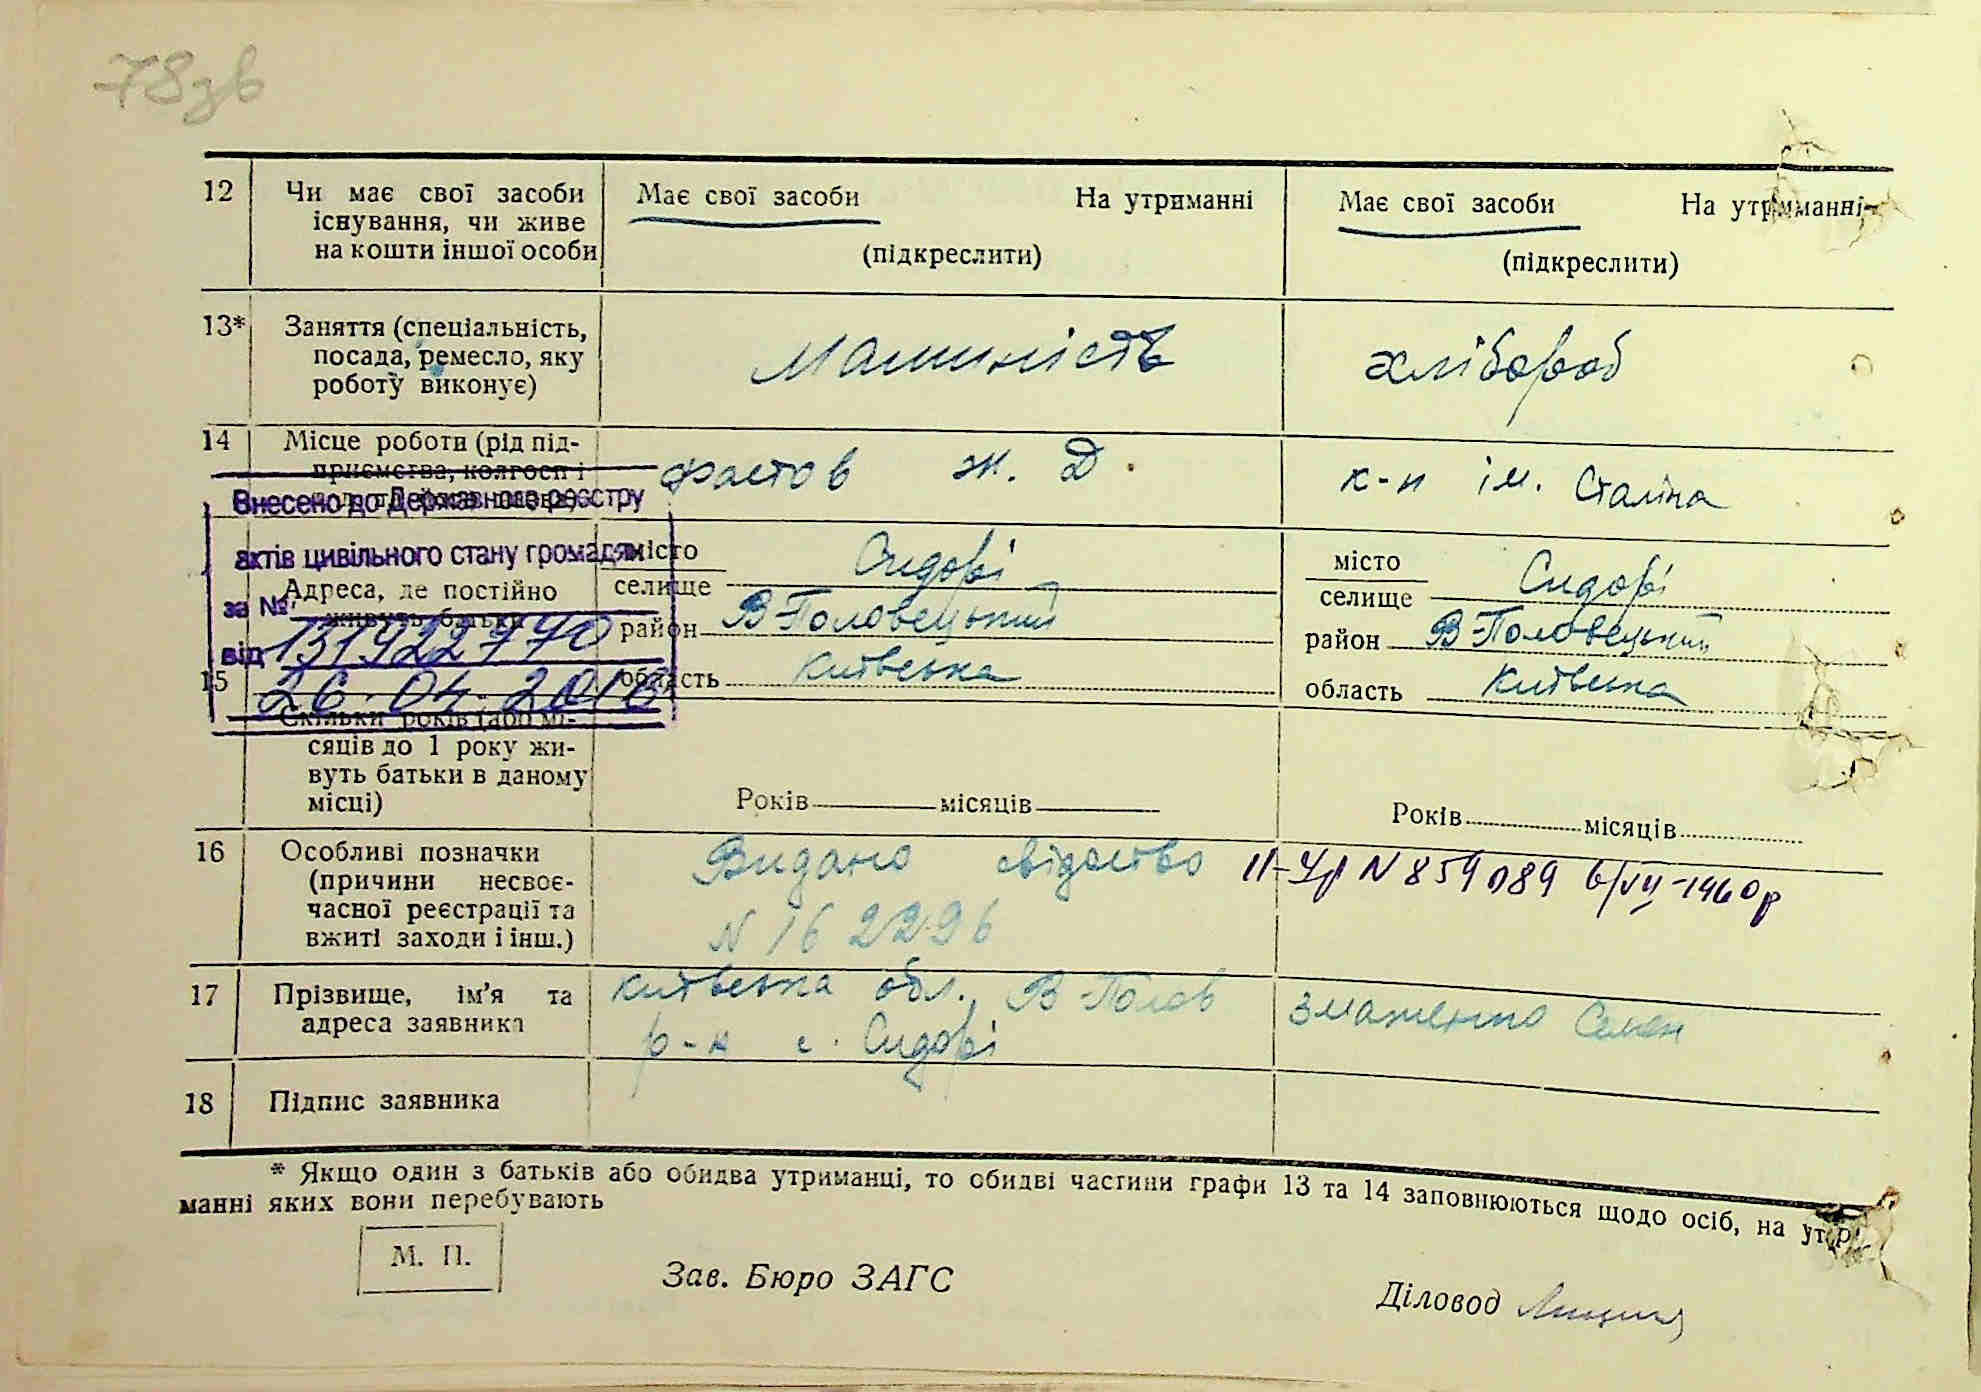 78зв
12 Чи має свої засоби Має свої засоби На утриманні Має свої засоби На утриманні
існування, чи живе
на кошти іншої особи (підкреслити) (підкреслити)
13* Заняття (спеціальність, Машиність хлібороб
посада, ремесло, яку
роботу виконує)
14 Місце роботи (рід під- Фастов Ж. Д. к-п ім. Сталіна
приємства, колгосп і
Внесено до Державного реєстру
актів цивільного стану громадян
місто Сидорі місто Сидорі
Адреса, де постійно селище селище
живуть батьки
за № 131922770
район В-Половецький район В-Половецький
від 26.04.2016
15 область Київська область Київська
Скільки років (або мі-
сяців до 1 року жи-
вуть батьки в даному
місці) Років місяців Років місяців
16 Особливі позначки Видано свідоство ІІ-Ур N 859089 6/VII-1960р
(причини несвоє-
часної реєстрації та N 162296
вжиті заходи і інш.)
17 Прізвище, ім'я та Київська обл. В-Полов Змаженко Семен
адреса заявника р-н с. Сидорі
18 Підпис заявника
* Якщо один з батьків або обидва утриманці, то обидві частини графи 13 та 14 заповнюються щодо осіб, на утри
манні яких вони перебувають
М. П.
Зав. Бюро ЗАГС Діловод